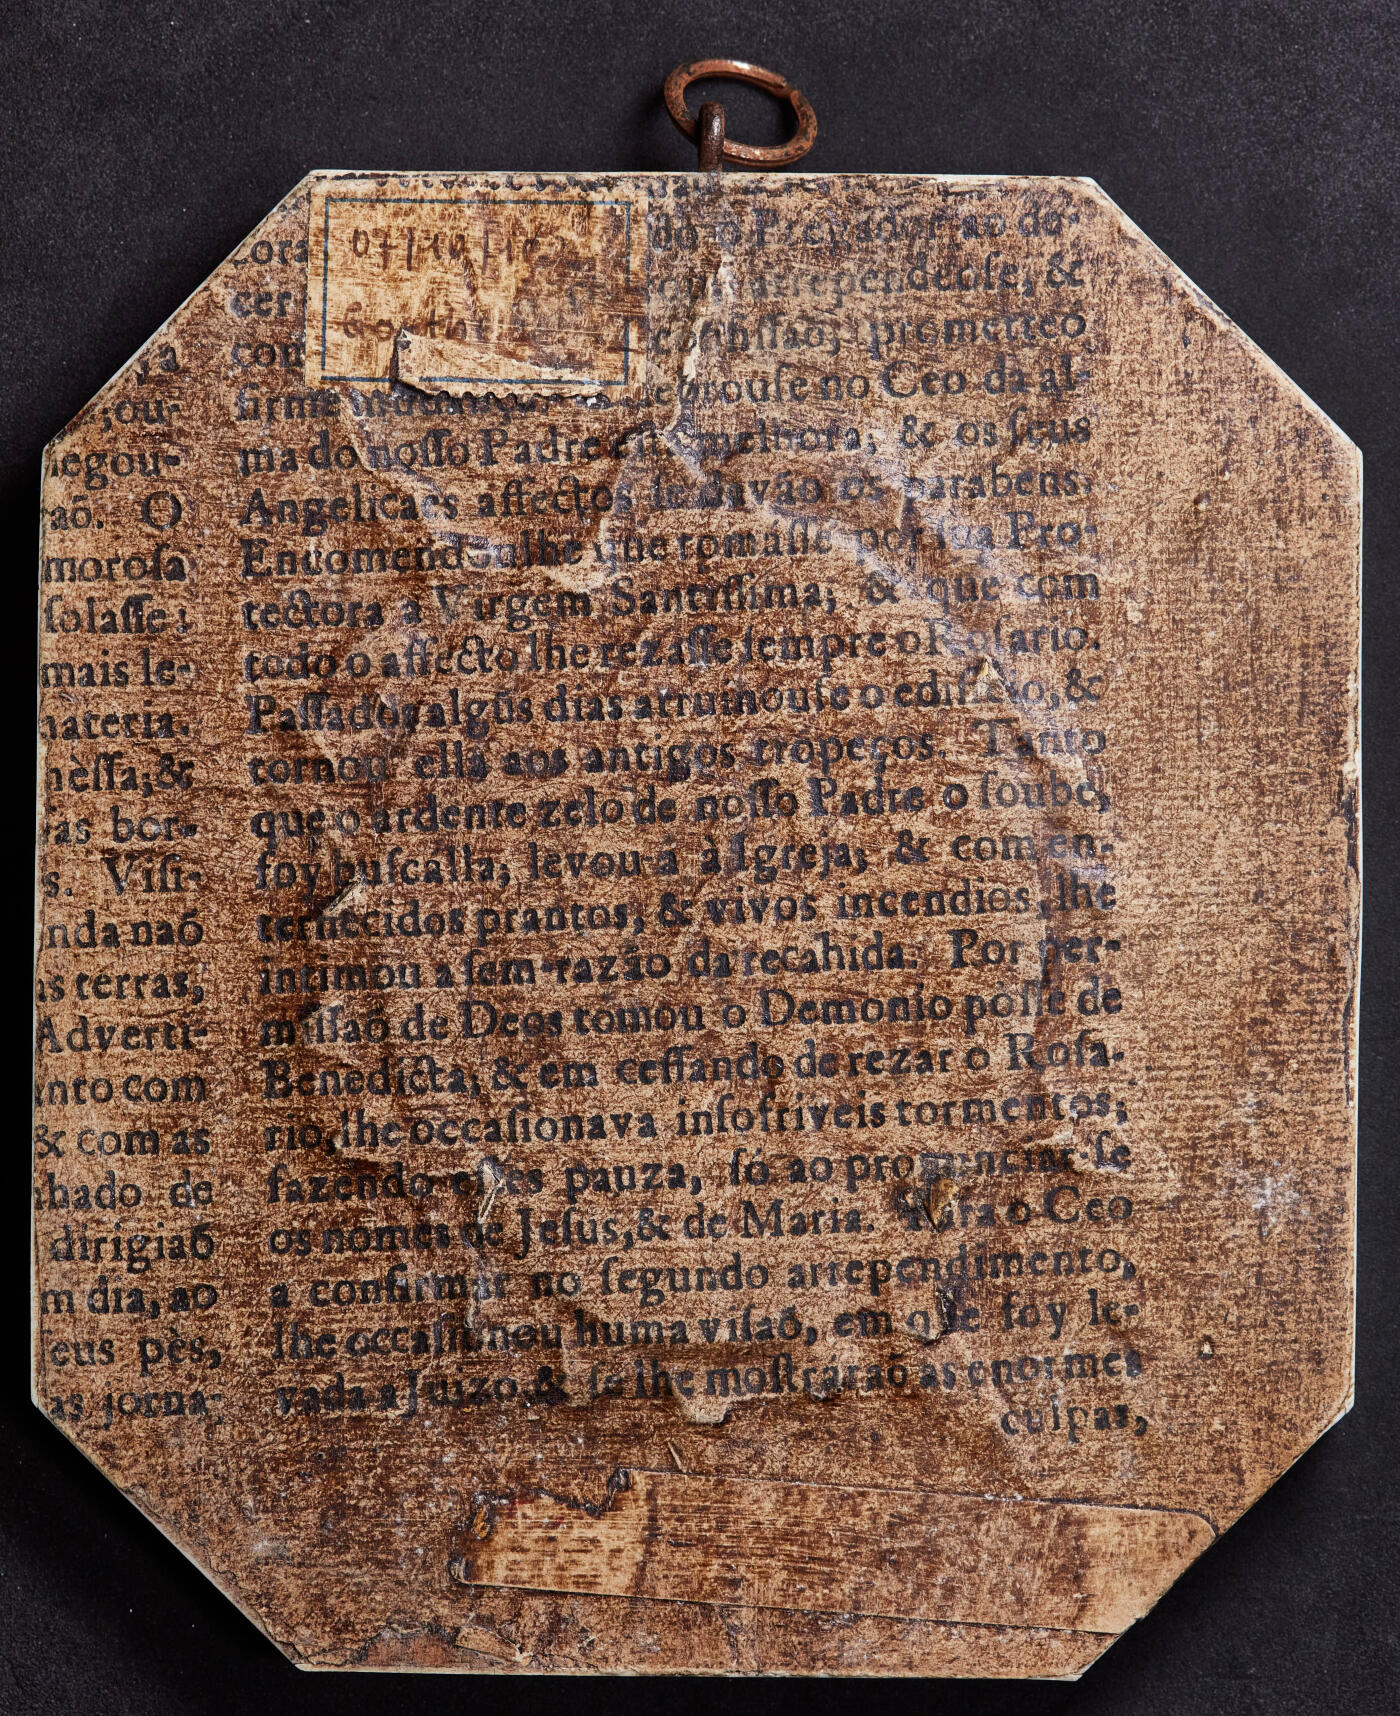 07/10/
ya
;ou-
negou-
aõ. O
morosa
ſolaſſe;
mais le-
nateria.
nèſſa;&
as bor-
s. Viſi-
nda naõ
as terras,
Adverti-
nto com
& com as
hado de
dirigiaõ
m dia, ao
ſeus pès,
as jorna-
cora do o Prégador ao de-
cer arrependeoſe, &
con confiſſaõ; prometteo
firme brouſe no Ceo da al-
ma do noſſo Padre eſta melhora, & os ſeus
Angelicaes affectos ſe davão os parabens.
Encomendoulhe que tomáſſe por ſua Pro-
tectora a Virgem Santiſſima; & que com
todo o affecto lhe rezaſſe ſempre o Roſario.
Paſſados algũs dias arruinouſe o edificio, &
tornou ella aos antigos tropeços. Tanto
que o ardente zelo de noſſo Padre o ſoube,
foy buſcálla; levou-a à Igreja; & com en-
ternecidos prantos, & vivos incendios, lhe
intimou a ſem-razão da recahida. Por per-
miſſaõ de Deos tomou o Demonio pòſſe de
Benedicta; & em ceſſando de rezar o Roſa-
rio, lhe occaſionava inſofriveis tormentos;
fazendo eſtes pauza, ſó ao pronunciar-ſe
os nomes de Jeſus, & de Maria. Para o Ceo
a confirmar no ſegundo arrependimento,
lhe occaſionou huma viſaõ, em que foy le-
vada a Juizo, & ſe lhe moſtráraõ as enormes
culpas,